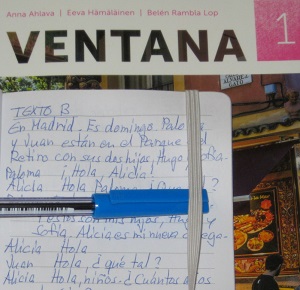 Anna Ahlava | Eeva Hämäläinen | Belén Rambla Lop
VENTANA 1
TEXTO B
En Madrid. Es domingo. Paloma
y Juan están en el Parque del
Retiro con sus dos hijos, Hugo y Sofía.
Paloma ¡Hola, Alicia!
Alicia Hola Paloma ¿Qué
son mis hijos, Hugo y
Sofía. Alicia es mi nueva colega.
Alicia Hola
Juan Hola, ¿qué tal?
Alicia Hola, niños. ¿Cuántos años